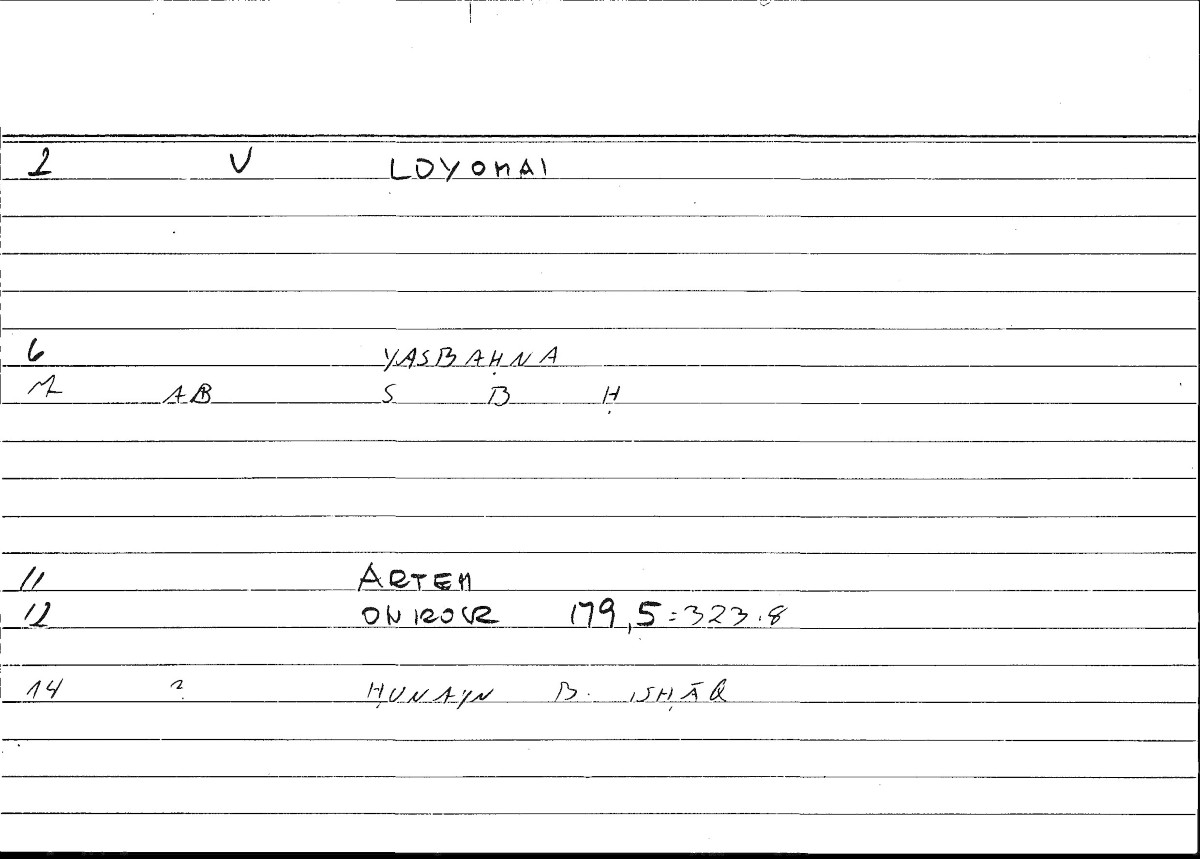 1 V LOYOMAI
6 YASBAḤNA
7 AB S B Ḥ
11 ARTEM
12 ONIROCR 179,5=323.8
14 2 ḤUNAYN B. ISḤĀQ